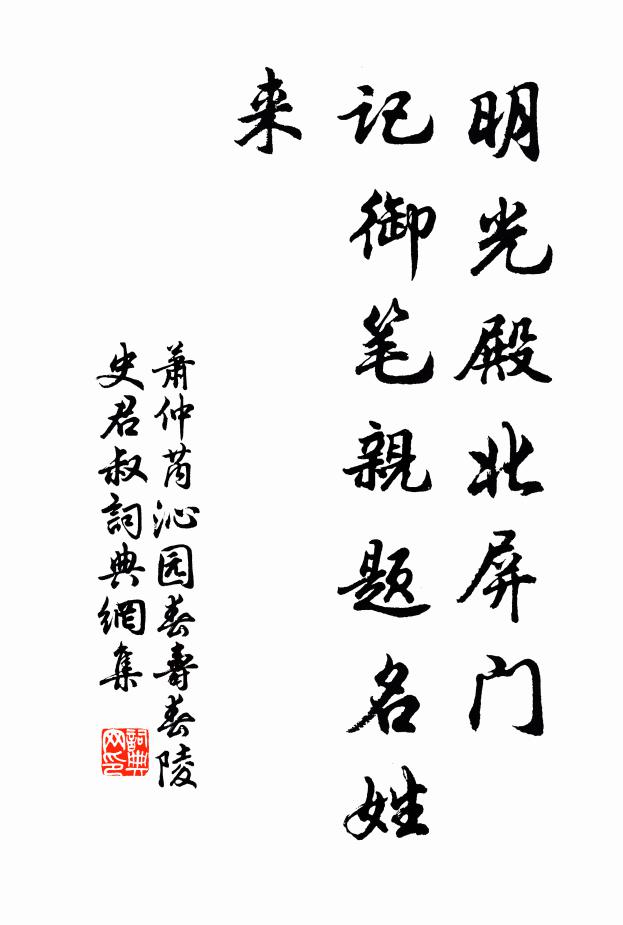 明光殿北屏门
记御笔親题名姓
来
萧仲芮沁园春壽春陵
史君叔詞典網集
詞典
网印